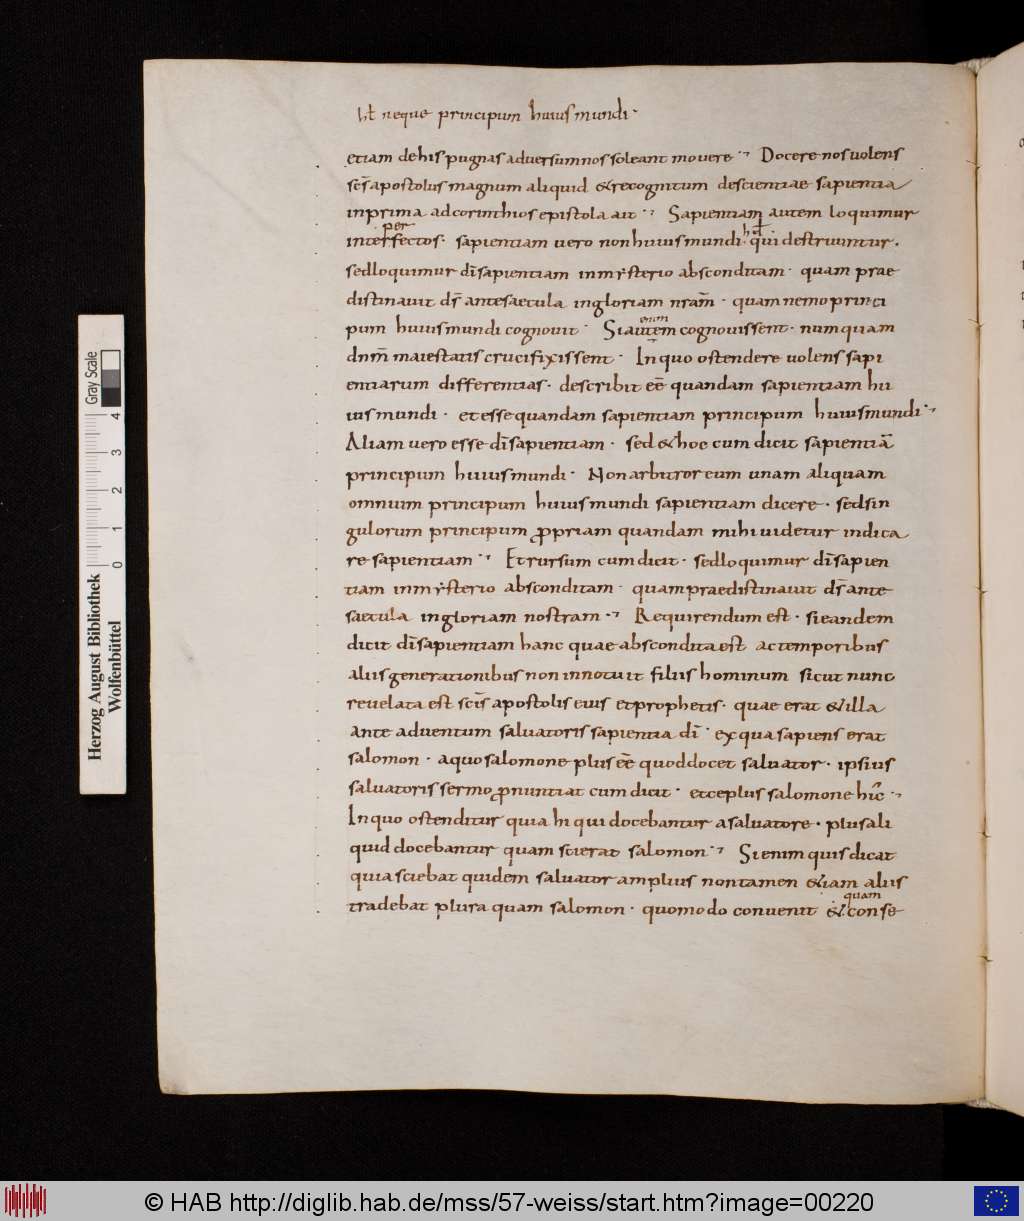 hđ neque principum huius mundi ·
etiam de his pugnas adversum nos soleant movere · Docere nos volens
scs̄ apostolus magnum aliquid & recognitum de scientiae sapientia
in prima ad corinthios epistola ait · Sapientiam autem loquimur
per hđ
inter fectos · sapientiam vero non huius mundi · qui destruuntur .
sed loquimur dī sapientiam in mẏsterio absconditam · quam prae
distinavit ds̄ ante saecula in gloriam nrām · quam nemo princi
enim
pum huius mundi cognouit · Si autem cognouissent · numquam
dnm̄ maiestatis crucifixissent · In quo ostendere uolens sapi
entiarum differentias · describit eē quandam sapientiam hu
ius mundi · et esse quandam sapientiam principum huius mundi ·
Aliam uero esse dī sapientiam · sed & hoc cum dicit sapientiā
principum huius mundi · Non arbitror eum unam aliquam
omnium principum huius mundi sapientiam dicere · sed sin
gulorum principum ꝓpriam quandam mihi uidetur indica
re sapientiam · Et rursum cum dicit · sed loquimur dī sapien
tiam in mẏsterio absconditam · quam praedistinauit ds̄ ante
saecula in gloriam nostram · Requirendum est · si eandem
dicit dī sapientiam hanc quae abscondita est ac temporibus
aliis generationibus non innotuit filiis hominum sicut nunc
reuelata est scīs apostolis eius et prophetis · quae erat & illa
ante aduentum saluatoris sapientia dī · ex qua sapiens erat
salomon · a quo salomone plus eē quod docet saluator · ipsius
saluatoris sermo ꝓnuntiat cum dicit · etce plus salomone hic ·
In quo ostenditur quia hi qui docebantur a saluatore · plus ali
quid docebantur quam scierat salomon · Si enim quis dicat
quia sciebat quidem saluator amplius non tamen &iam aliis
quam
tradebat plura quam salomon · quomodo convenit & conse
Herzog August Bibliothek
Wolfenbüttel
0 1 2 3 4
Gray Scale
© HAB http://diglib.hab.de/mss/57-weiss/start.htm?image=00220